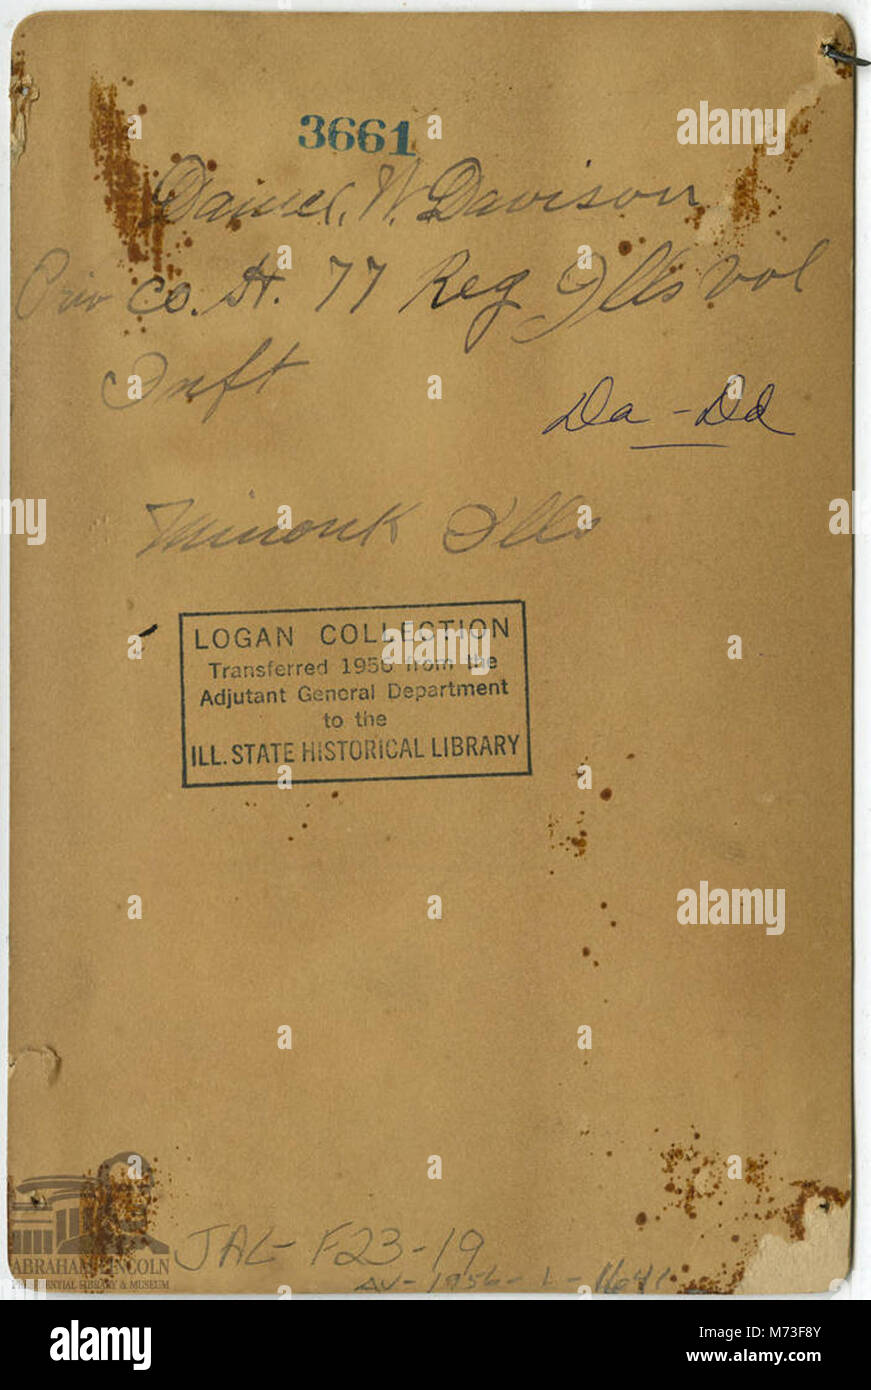 3661
Daniel. W. Davison
Priv Co. H. 77 Reg Ills Vol
Inft
Da - Dd
Minonk Ills
LOGAN COLLECTION
Transferred 1956 from the
Adjutant General Department
to the
ILL. STATE HISTORICAL LIBRARY
JAL- F23-19
AV- 1956- L- 1641
ABRAHAM LINCOLN
PRESIDENTIAL LIBRARY & MUSEUM
alamy
alamy
alamy
alamy
alamy
Image ID: M73F8Y
www.alamy.com